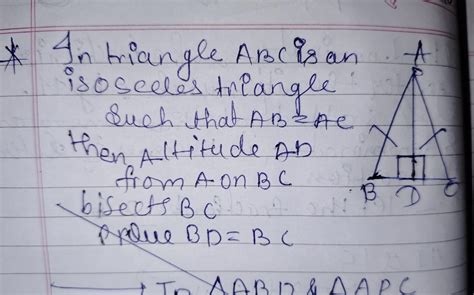 In triangle ABC is an
isosceles triangle
Such that AB = AC
then Altitude AD
from A on BC
bisects BC
prove BD = BC
A
B D C
In △ABD & △APC